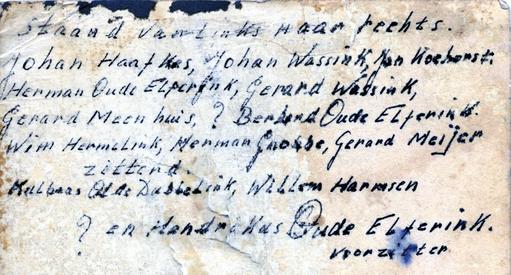 staand van links naar rechts.
Johan Haafkes, Johan Wassink, Jan Koehorst.
Herman Oude Elferink, Gerard Wassink,
Gerard Meenhuis, ? Berhard Oude Elferink.
Wim Hermelink, Herman Grobbe, Gerard Meijer
zittend.
Olde Dubbelink, Willem Harmsen
? en Hendrikus Oude Elferink.
voorzitter